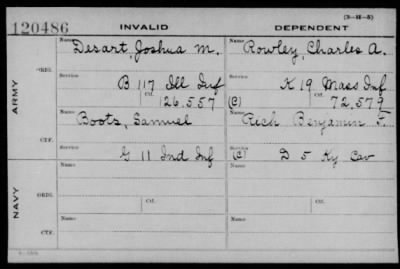 (3-H-5)
120486 INVALID DEPENDENT
Name Desart, Joshua M. Name Rowley, Charles A.
ORIG. Service B 117 Ill Inf Service K 19 Mass Inf
ARMY Ctf. 126,557 (C) Ctf. 72,579
Name Boots, Samuel Name Rich Benjamin F.
CTF. Service G 11 Ind Inf (C) Service D 5 Ky Cav
Name Name
NAVY ORIG. Service Ctf. Service Ctf.
Name Name
CTF. Service Service